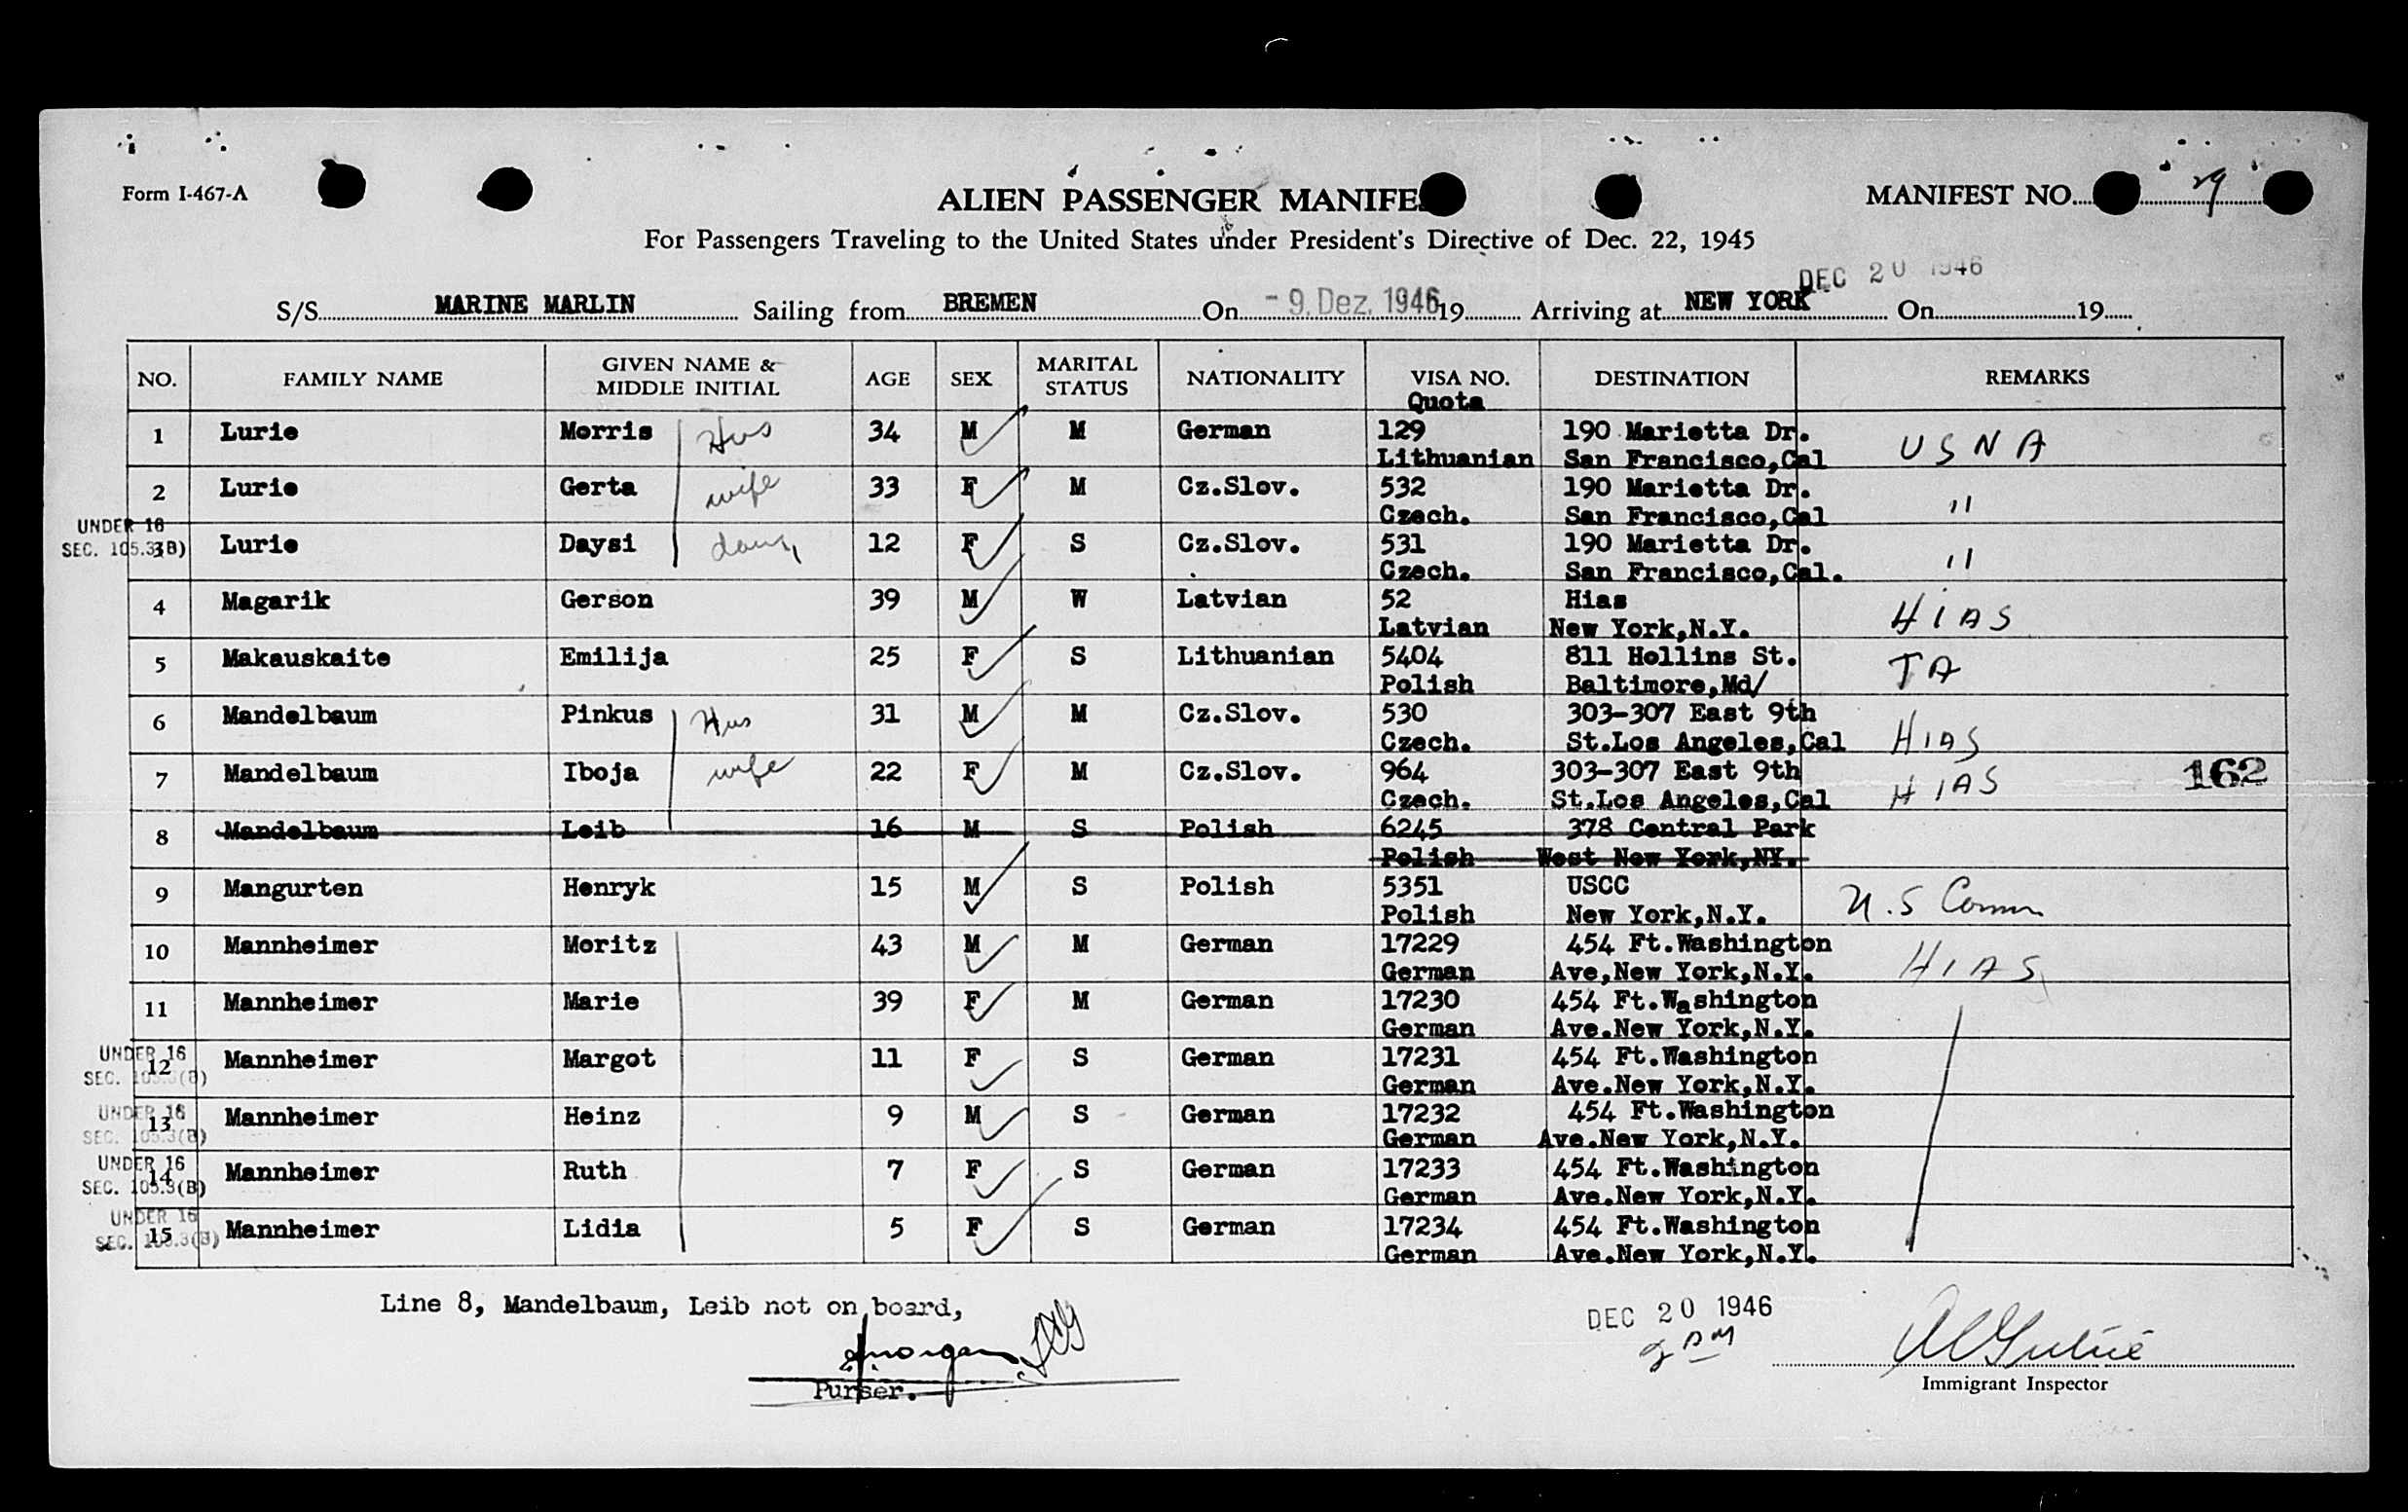 Form I-467-A
ALIEN PASSENGER MANIFE
MANIFEST NO. 29
For Passengers Traveling to the United States under President's Directive of Dec. 22, 1945
DEC 20 1946
S/S MARINE MARLIN Sailing from BREMEN On - 9. Dez. 1946 19 Arriving at NEW YORK On 19
NO. FAMILY NAME GIVEN NAME & MIDDLE INITIAL AGE SEX MARITAL STATUS NATIONALITY VISA NO. Quota DESTINATION REMARKS
1 Lurie Morris Hus 34 M M German 129 190 Marietta Dr. USNA
Lithuanian San Francisco,Cal
2 Lurie Gerta wife 33 F M Cz.Slov. 532 190 Marietta Dr. "
Czech. San Francisco,Cal
UNDER 16
SEC. 105.3(B) 3 Lurie Daysi daug 12 F S Cz.Slov. 531 190 Marietta Dr. "
Czech. San Francisco,Cal.
4 Magarik Gerson 39 M W Latvian 52 Hias HIAS
Latvian New York,N.Y.
5 Makauskaite Emilija 25 F S Lithuanian 5404 811 Hollins St. TA
Polish Baltimore,Md/
6 Mandelbaum Pinkus Hus 31 M M Cz.Slov. 530 303-307 East 9th HIAS
Czech. St.Los Angeles,Cal
7 Mandelbaum Iboja wife 22 F M Cz.Slov. 964 303-307 East 9th HIAS 162
Czech. St.Los Angeles,Cal
8 Mandelbaum Leib 16 M S Polish 6245 378 Central Park
Polish West New York,NY.
9 Mangurten Henryk 15 M S Polish 5351 USCC U.S Comm
Polish New York,N.Y.
10 Mannheimer Moritz 43 M M German 17229 454 Ft.Washington HIAS
German Ave,New York,N.Y.
11 Mannheimer Marie 39 F M German 17230 454 Ft.Washington
German Ave.New York,N.Y.
UNDER 16
SEC. 105.3(B) 12 Mannheimer Margot 11 F S German 17231 454 Ft.Washington
German Ave.New York,N.Y.
UNDER 16
SEC. 105.3(B) 13 Mannheimer Heinz 9 M S German 17232 454 Ft.Washington
German Ave.New York,N.Y.
UNDER 16
SEC. 105.3(B) 14 Mannheimer Ruth 7 F S German 17233 454 Ft.Washington
German Ave.New York,N.Y.
UNDER 16
SEC. 105.3(B) 15 Mannheimer Lidia 5 F S German 17234 454 Ft.Washington
German Ave.New York,N.Y.
Line 8, Mandelbaum, Leib not on board,
DEC 20 1946
Purser.
Immigrant Inspector